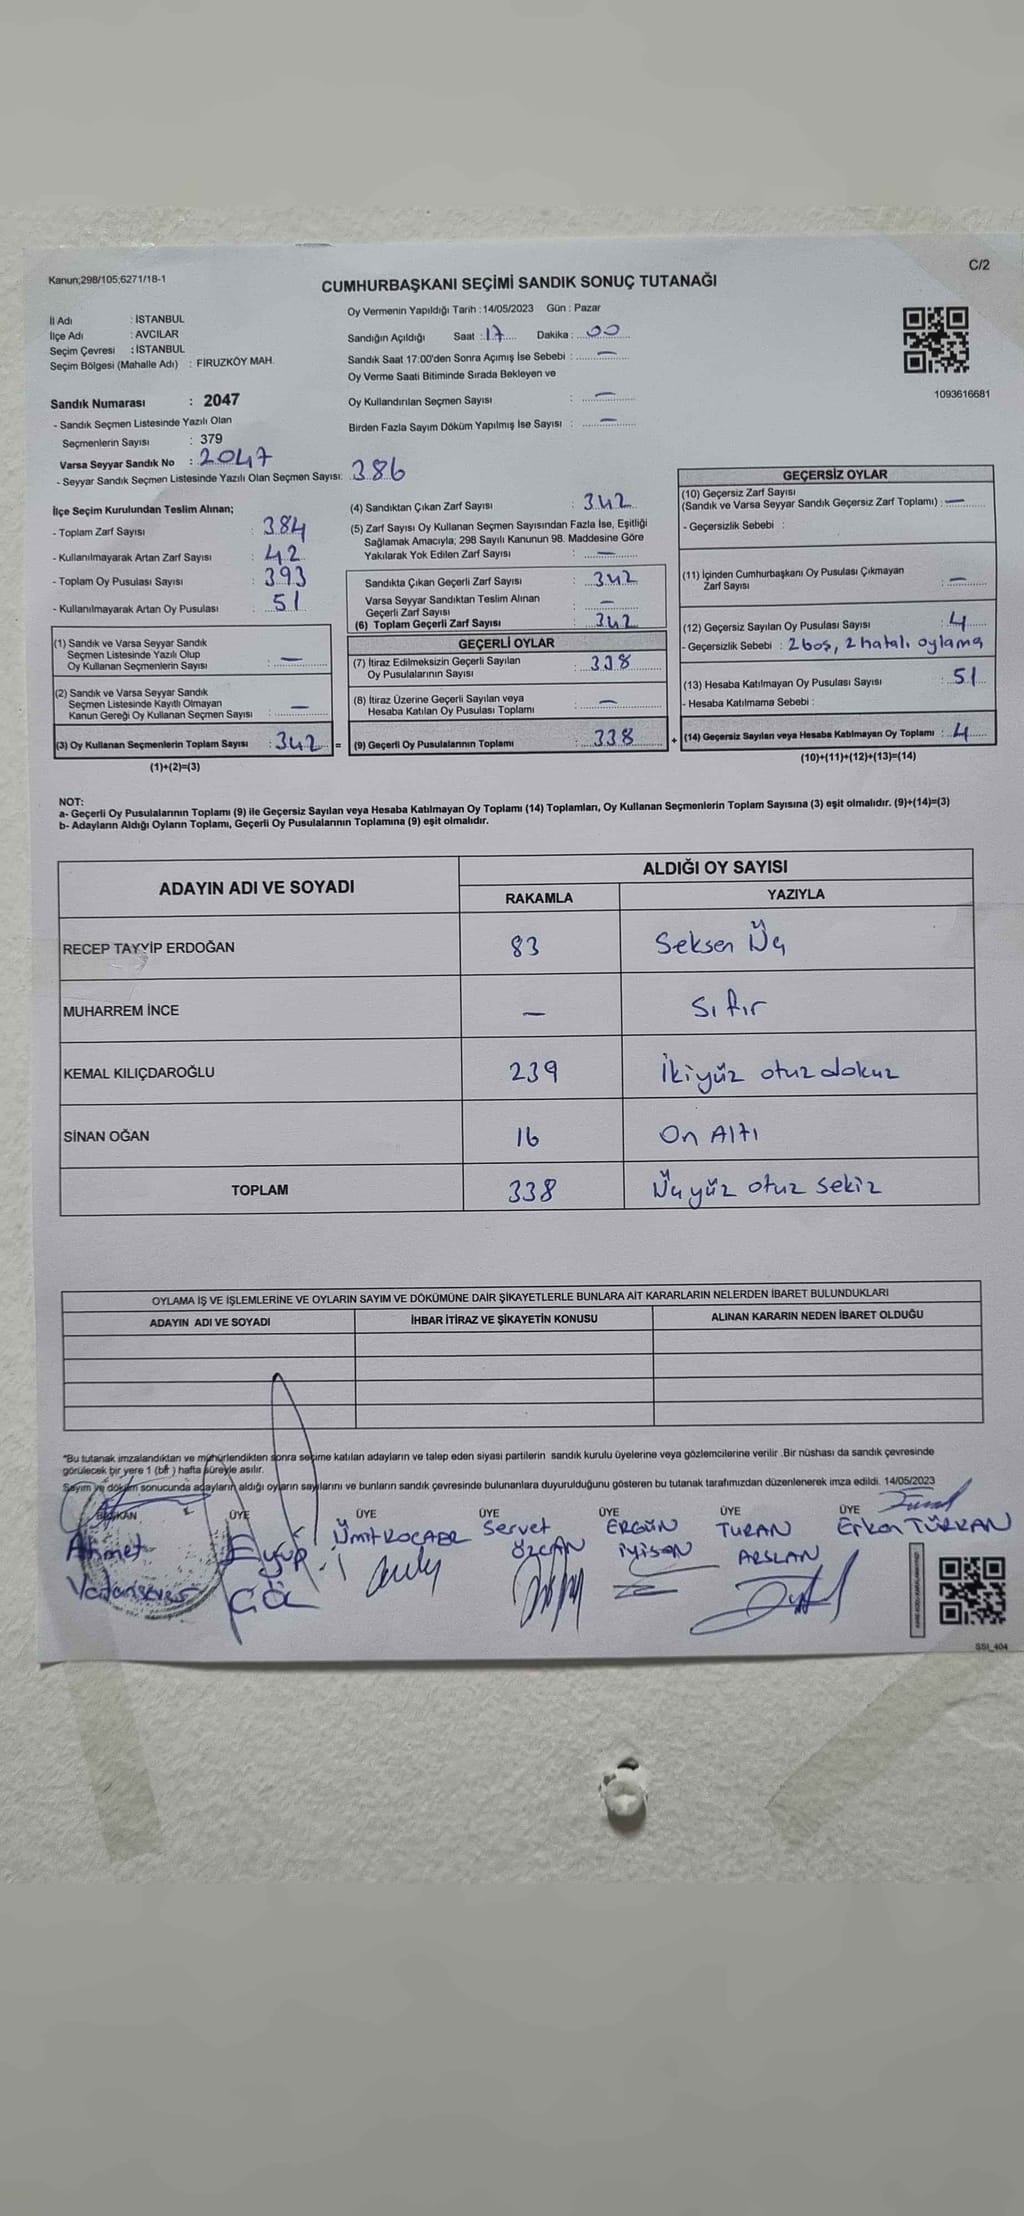 Kanun;298/105;6271/18-1
C/2
CUMHURBAŞKANI SEÇİMİ SANDIK SONUÇ TUTANAĞI
İl Adı : İSTANBUL
İlçe Adı : AVCILAR
Seçim Çevresi : İSTANBUL
Seçim Bölgesi (Mahalle Adı) : FİRUZKÖY MAH.
Sandık Numarası : 2047
- Sandık Seçmen Listesinde Yazılı Olan
Seçmenlerin Sayısı : 379
Varsa Seyyar Sandık No : 2047
- Seyyar Sandık Seçmen Listesinde Yazılı Olan Seçmen Sayısı: 386
Oy Vermenin Yapıldığı Tarih : 14/05/2023 Gün : Pazar
Sandığın Açıldığı Saat : 17 Dakika : 00
Sandık Saat 17:00'den Sonra Açımış İse Sebebi : —
Oy Verme Saati Bitiminde Sırada Bekleyen ve
Oy Kullandırılan Seçmen Sayısı : —
Birden Fazla Sayım Döküm Yapılmış İse Sayısı : —
1093616681
İlçe Seçim Kurulundan Teslim Alınan;
- Toplam Zarf Sayısı : 384
- Kullanılmayarak Artan Zarf Sayısı : 42
- Toplam Oy Pusulası Sayısı : 393
- Kullanılmayarak Artan Oy Pusulası : 51
(1) Sandık ve Varsa Seyyar Sandık
Seçmen Listesinde Yazılı Olup
Oy Kullanan Seçmenlerin Sayısı : —
(2) Sandık ve Varsa Seyyar Sandık
Seçmen Listesinde Kayıtlı Olmayan
Kanun Gereği Oy Kullanan Seçmen Sayısı : —
(3) Oy Kullanan Seçmenlerin Toplam Sayısı : 342 =
(1)+(2)=(3)
(4) Sandıktan Çıkan Zarf Sayısı : 342
(5) Zarf Sayısı Oy Kullanan Seçmen Sayısından Fazla İse, Eşitliği
Sağlamak Amacıyla; 298 Sayılı Kanunun 98. Maddesine Göre
Yakılarak Yok Edilen Zarf Sayısı : —
Sandıkta Çıkan Geçerli Zarf Sayısı : 342
Varsa Seyyar Sandıktan Teslim Alınan
Geçerli Zarf Sayısı : —
(6) Toplam Geçerli Zarf Sayısı : 342
GEÇERLİ OYLAR
(7) İtiraz Edilmeksizin Geçerli Sayılan
Oy Pusulalarının Sayısı : 338
(8) İtiraz Üzerine Geçerli Sayılan veya
Hesaba Katılan Oy Pusulası Toplamı : —
(9) Geçerli Oy Pusulalarının Toplamı : 338 +
GEÇERSİZ OYLAR
(10) Geçersiz Zarf Sayısı
(Sandık ve Varsa Seyyar Sandık Geçersiz Zarf Toplamı) : —
- Geçersizlik Sebebi :
(11) İçinden Cumhurbaşkanı Oy Pusulası Çıkmayan
Zarf Sayısı : —
(12) Geçersiz Sayılan Oy Pusulası Sayısı : 4
- Geçersizlik Sebebi : 2 boş, 2 hatalı oylama
(13) Hesaba Katılmayan Oy Pusulası Sayısı : 51
- Hesaba Katılmama Sebebi :
(14) Geçersiz Sayılan veya Hesaba Katılmayan Oy Toplamı : 4
(10)+(11)+(12)+(13)=(14)
NOT:
a- Geçerli Oy Pusulalarının Toplamı (9) ile Geçersiz Sayılan veya Hesaba Katılmayan Oy Toplamı (14) Toplamları, Oy Kullanan Seçmenlerin Toplam Sayısına (3) eşit olmalıdır. (9)+(14)=(3)
b- Adayların Aldığı Oyların Toplamı, Geçerli Oy Pusulalarının Toplamına (9) eşit olmalıdır.
ADAYIN ADI VE SOYADI
ALDIĞI OY SAYISI
RAKAMLA YAZIYLA
RECEP TAYYİP ERDOĞAN 83 Seksen Üç
MUHARREM İNCE — Sıfır
KEMAL KILIÇDAROĞLU 239 İkiyüz otuz dokuz
SİNAN OĞAN 16 On Altı
TOPLAM 338 Üçyüz otuz sekiz
OYLAMA İŞ VE İŞLEMLERİNE VE OYLARIN SAYIM VE DÖKÜMÜNE DAİR ŞİKAYETLERLE BUNLARA AİT KARARLARIN NELERDEN İBARET BULUNDUKLARI
ADAYIN ADI VE SOYADI İHBAR İTİRAZ VE ŞİKAYETİN KONUSU ALINAN KARARIN NEDEN İBARET OLDUĞU
*Bu tutanak imzalandıktan ve mühürlendikten sonra seçime katılan adayların ve talep eden siyasi partilerin sandık kurulu üyelerine veya gözlemcilerine verilir. Bir nüshası da sandık çevresinde
görülecek bir yere 1 (bir) hafta süreyle asılır.
Sayım ve döküm sonucunda adayların aldığı oyların sayılarını ve bunların sandık çevresinde bulunanlara duyurulduğunu gösteren bu tutanak tarafımızdan düzenlenerek imza edildi. 14/05/2023
BAŞKAN ÜYE ÜYE ÜYE ÜYE ÜYE ÜYE
Ahmet Eyüp Ümit KOÇABR Servet ERGÜN TURAN Erkan TÜRKAN
Vatansever GÖL ÖZCAN İYİSON ARSLAN
SSI_404